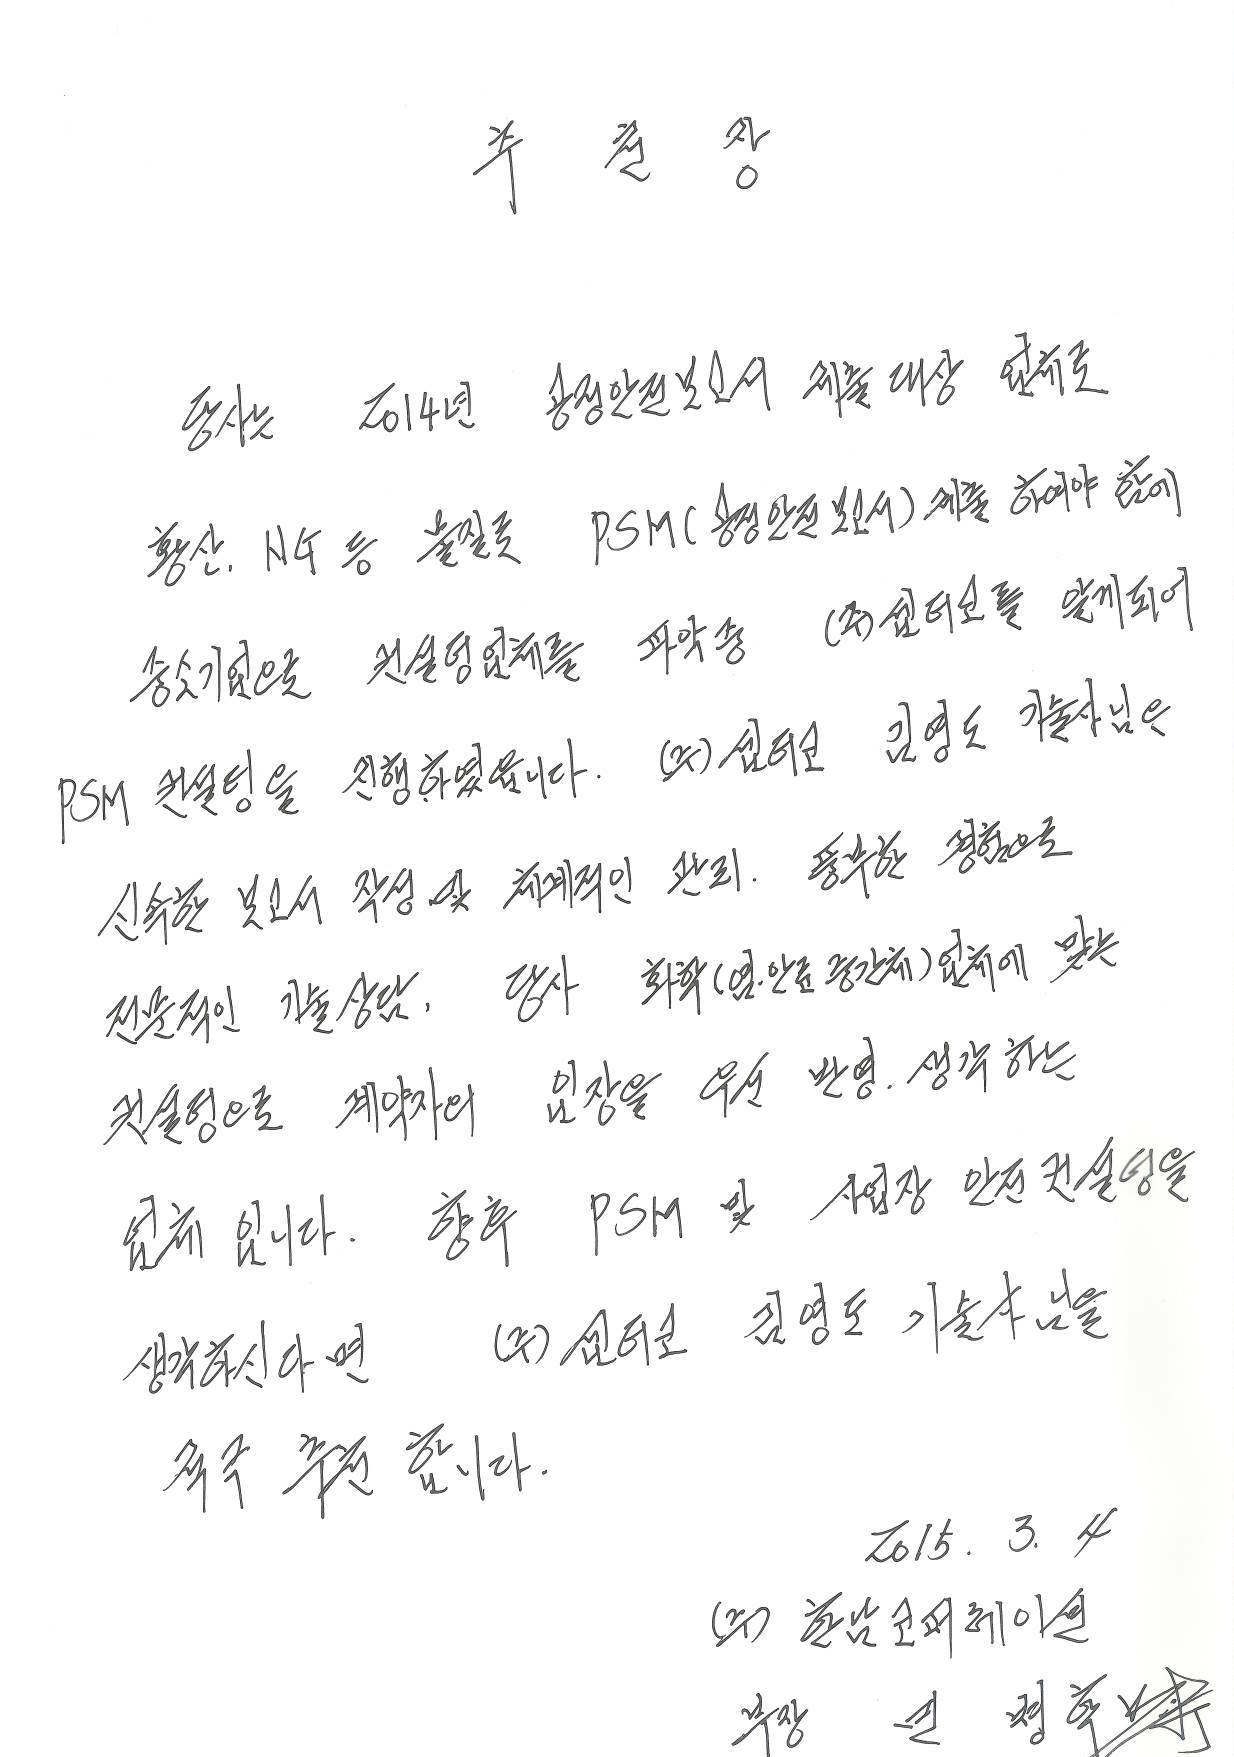 추 천 장
당사는 2014년 공정안전보고서 제출 대상 업체로
황산, NG 등 물질로 PSM(공정안전보고서) 제출 하여야 함에
중소기업으로 컨설팅업체를 파악중 (주)쉽터코를 알게되어
PSM 컨설팅을 진행하였읍니다. (주) 김영도 기술사님은
신속한 보고서 작성 및 체계적인 관리. 풍부한 경험으로
전문적인 기술상담, 당사 화학(염.안료 중간체)업체에 맞는
컨설팅으로 계약자의 입장을 우선 반영. 생각하는
업체 입니다. 향후 PSM 및 사업장 안전컨설팅을
생각하신다면 (주) 김영도 기술사님을
적극 추천 합니다.
2015. 3. 4
(주) 한남코퍼레이션
부장 권